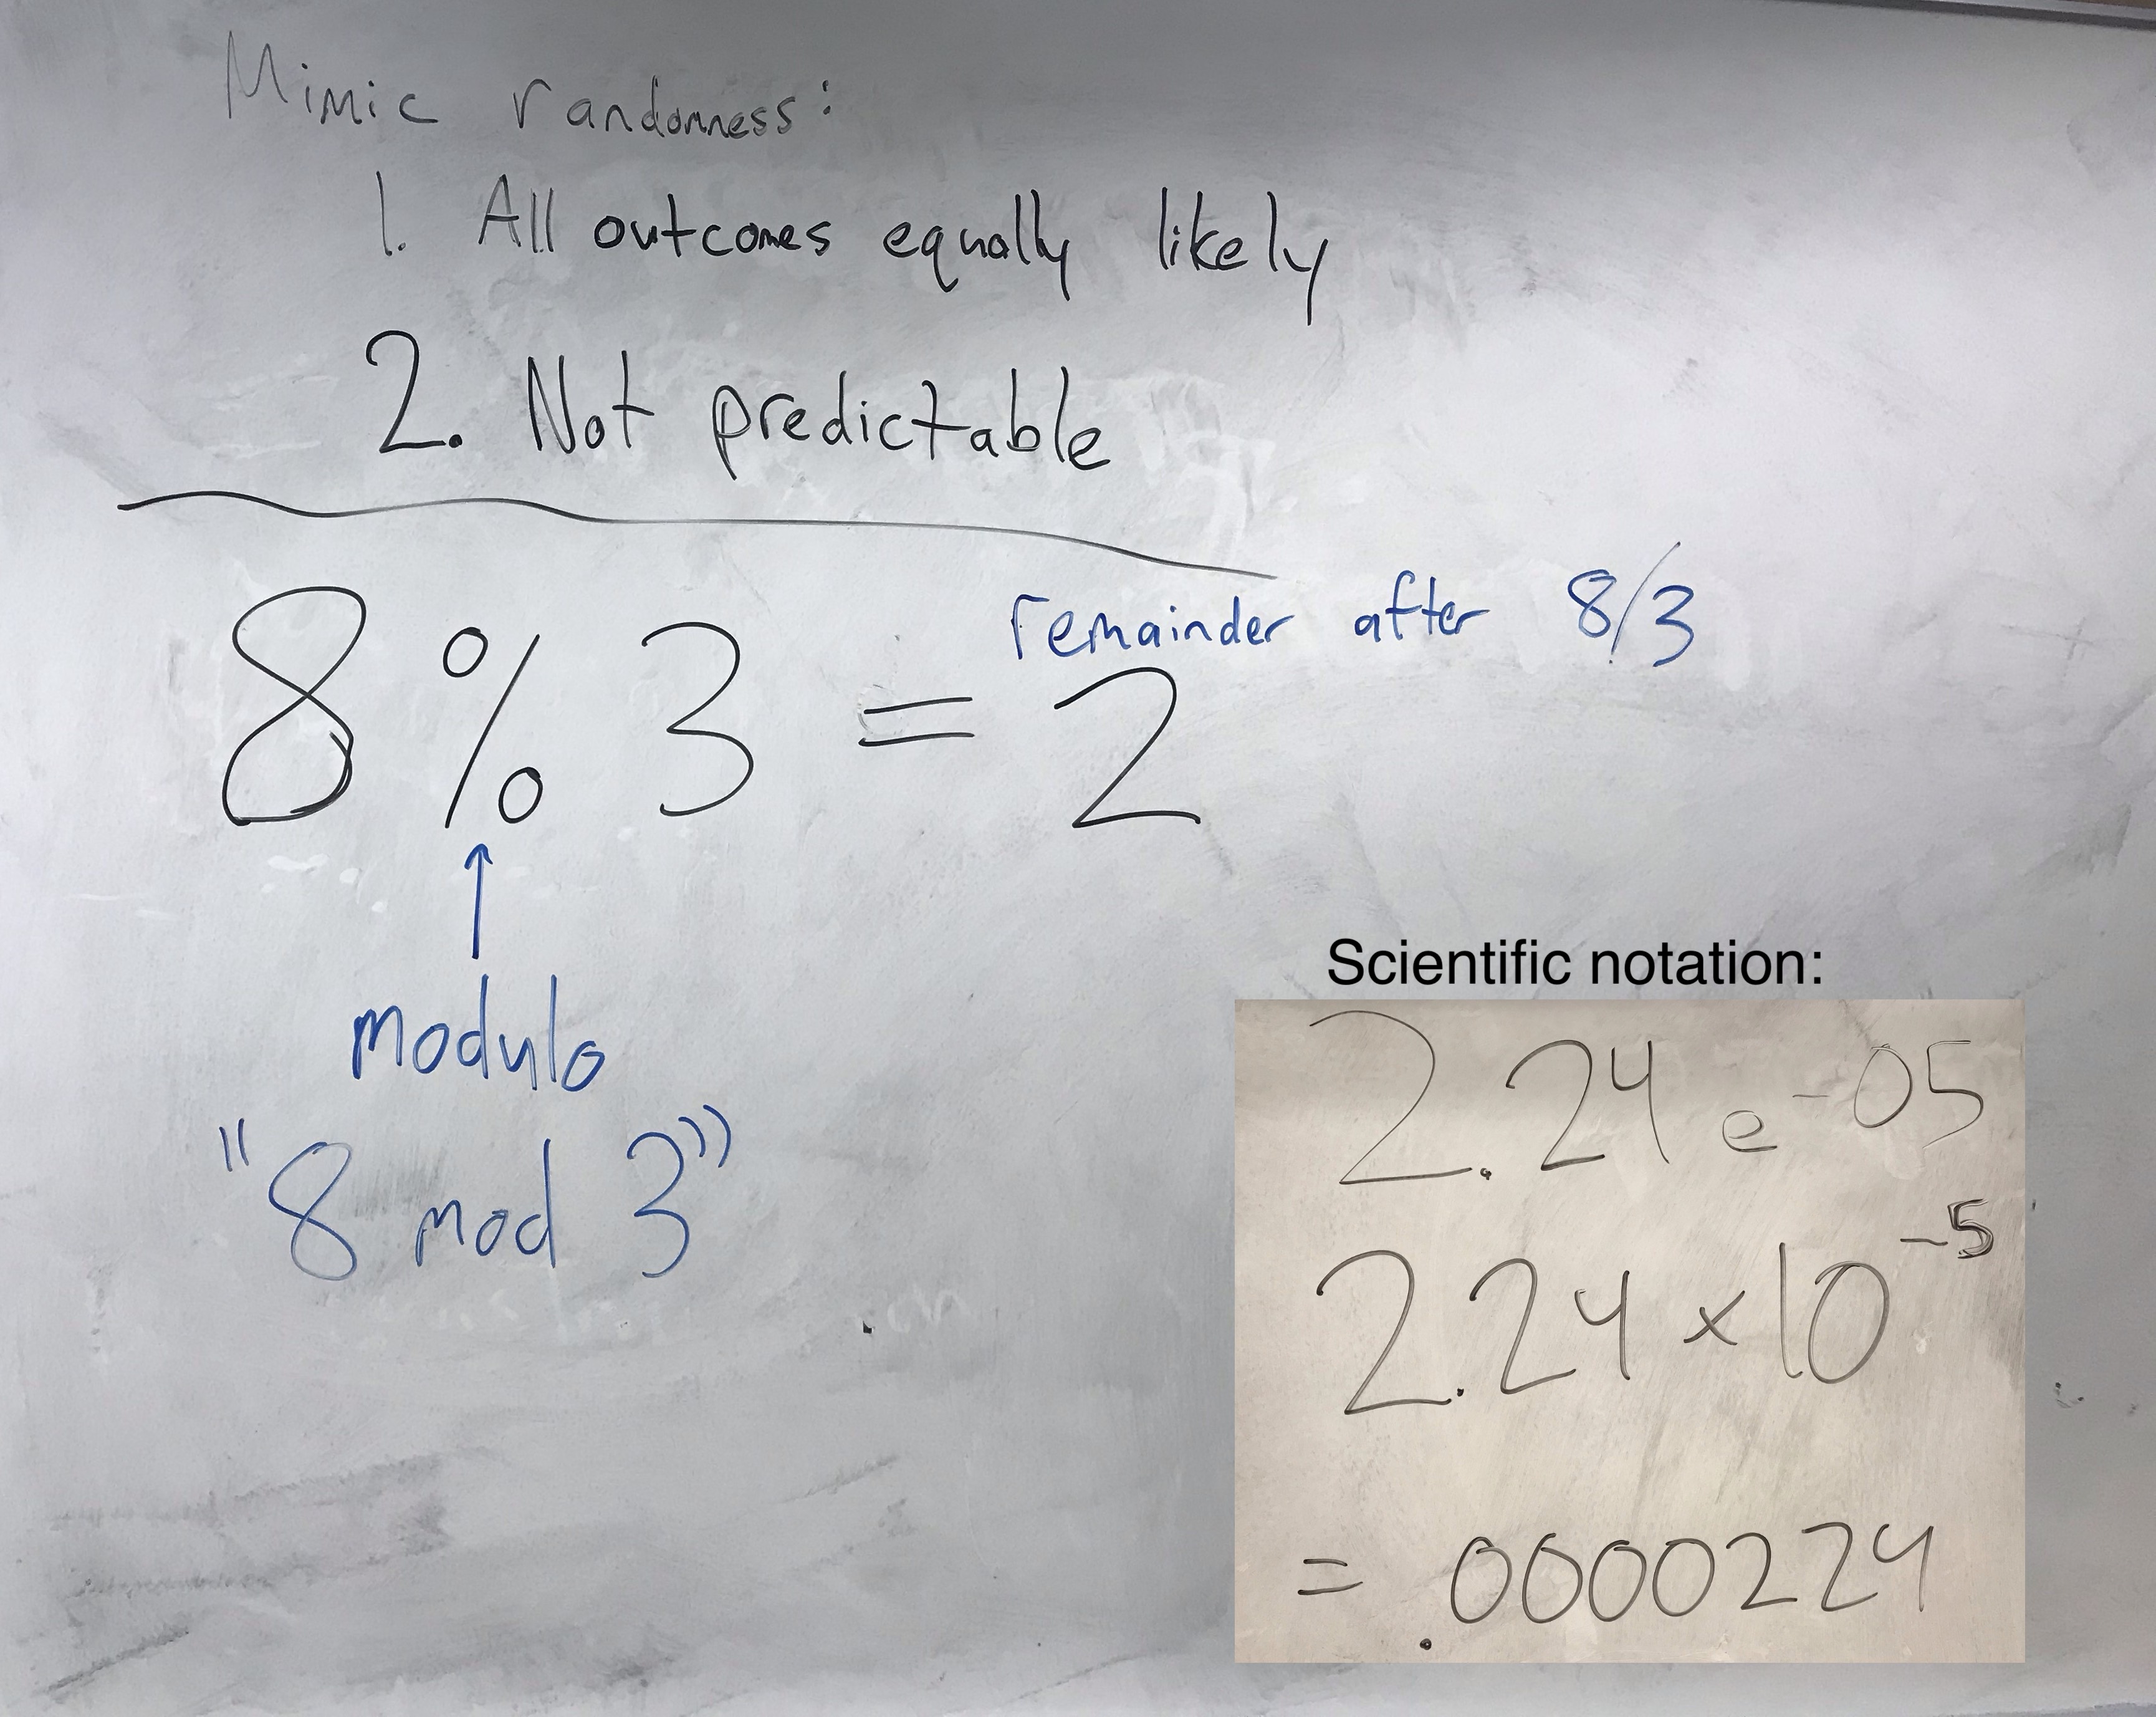 Mimic randomness:
1. All outcomes equally likely
2. Not predictable
remainder after 8/3
8 % 3 = 2
↑
modulo
"8 mod 3"
Scientific notation:
2.24 e-05
2.24 x 10⁻⁵
= .0000224